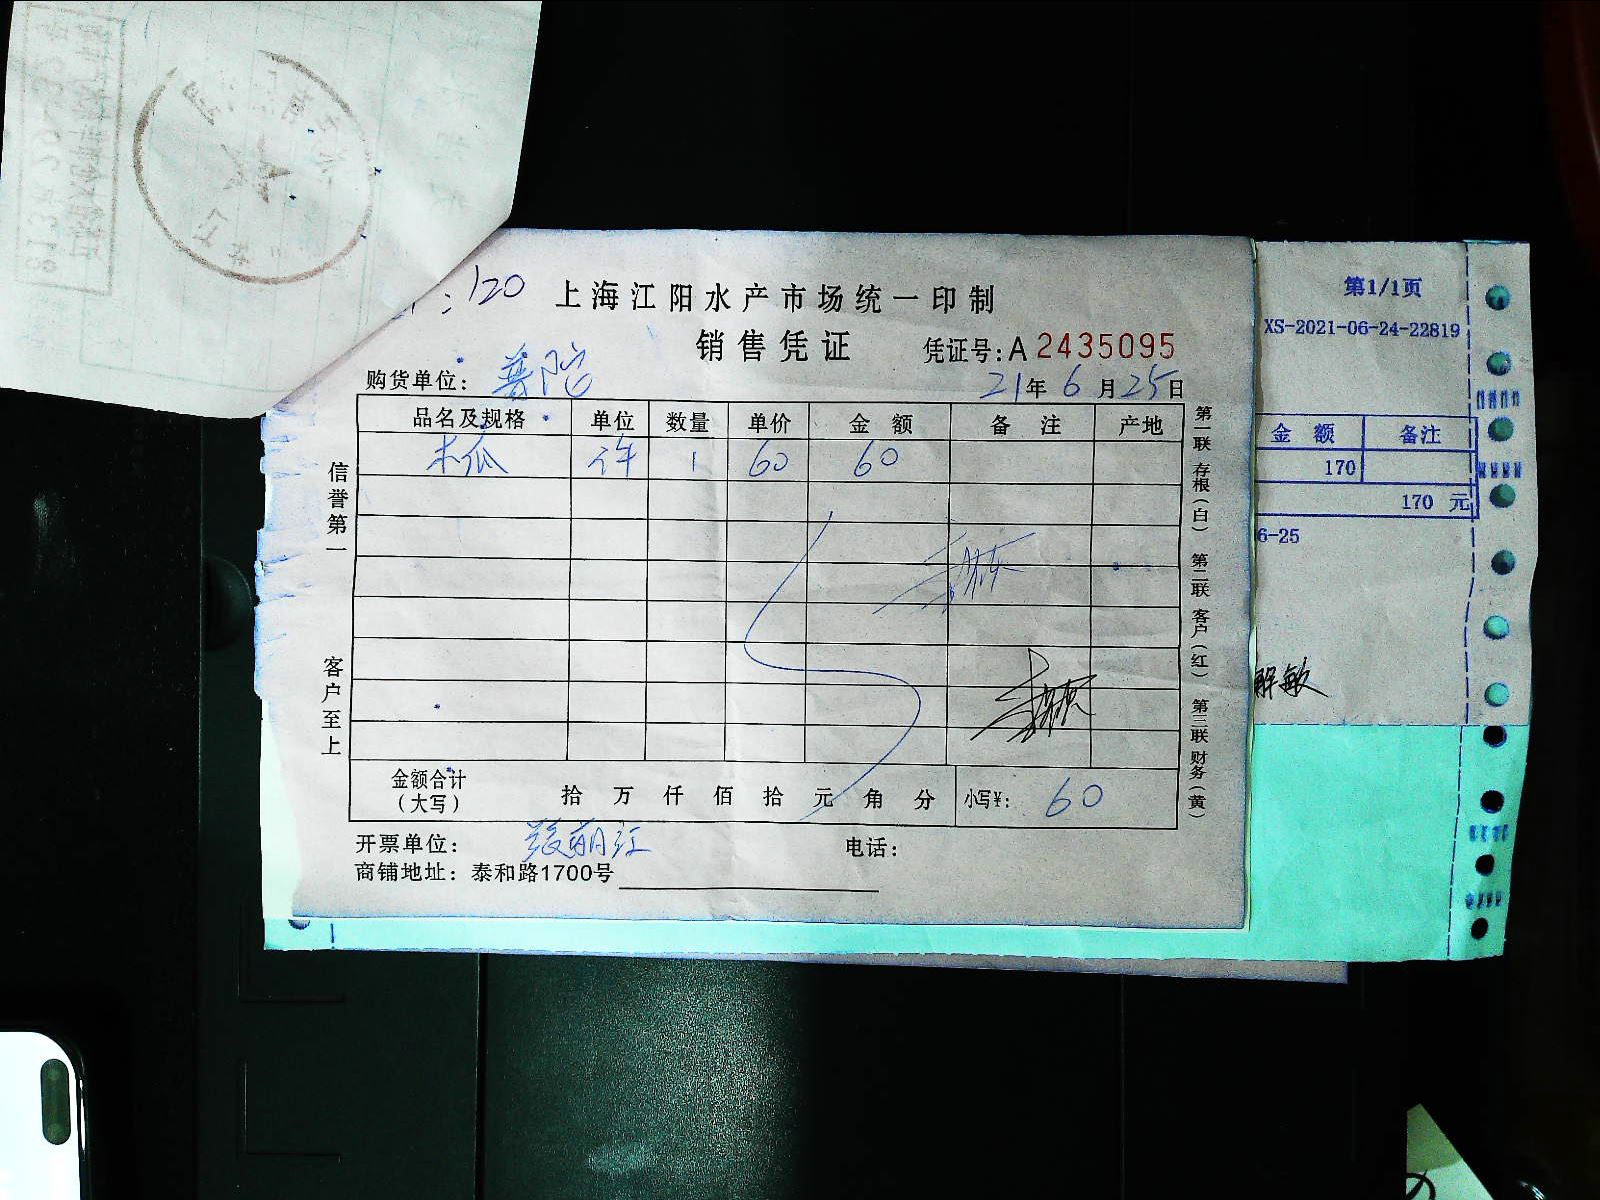 :120
上海江阳水产市场统一印制
销售凭证
凭证号:A 2435095
购货单位: 普陀
21年6月25日
品名及规格 单位 数量 单价 金额 备注 产地
木瓜 件 1 60 60
金额合计(大写) 拾 万 仟 佰 拾 元 角 分 小写¥: 60
开票单位: 张丽江
电话:
商铺地址: 泰和路1700号
信誉第一
客户至上
第一联 存根(白) 第二联 客户(红) 第三联 财务(黄)
第1/1页
XS-2021-06-24-22819
金额 备注
170
170 元
6-25
解敏